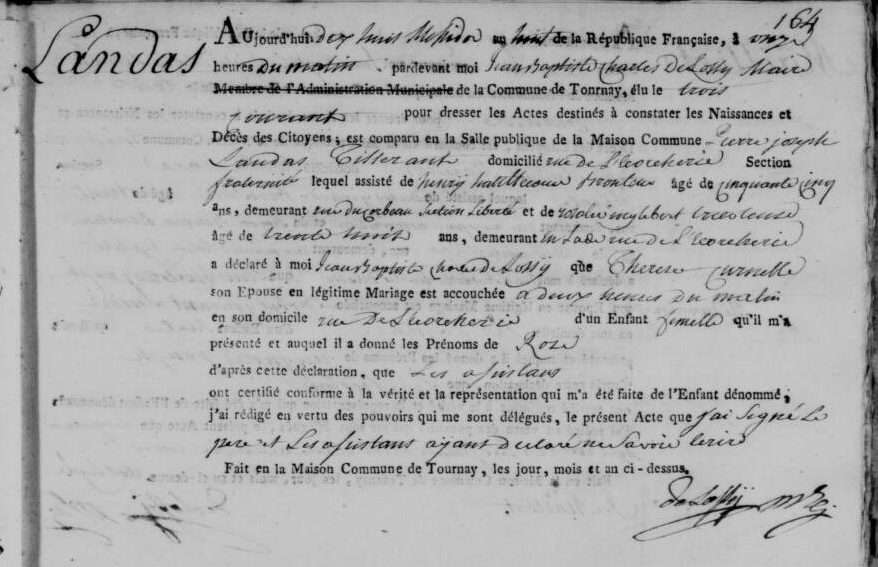 164
Landas
Aujourd'hui dix huit Messidor an huit de la République Française, à onze
heures Du matin pardevant moi Jean Baptiste Charles De Lossy Maire
Membre de l'Administration Municipale de la Commune de Tournay, élu le trois
courant pour dresser les Actes destinés à constater les Naissances et
Décès des Citoyens; est comparu en la Salle publique de la Maison Commune Pierre joseph
Landas Tisserant domicilié rue De Lecorcherie Section
fraternité lequel assisté de henry âgé de cinquante cinq
ans, demeurant rue du Corbeau Section Liberté et de rosalie inglebert
âgé de trente huit ans, demeurant rue de Lecorcherie
a déclaré à moi Jean Baptiste Charles De Lossy que Therese Curnelle
son Epouse en légitime Mariage est accouchée a deux heures du matin
en son domicile rue De Lecorcherie d'un Enfant femelle qu'il m'a
présenté et auquel il a donné les Prénoms de Rose
d'après cette déclaration, que Les assistans
ont certifié conforme à la vérité et la représentation qui m'a été faite de l'Enfant dénommé;
j'ai rédigé en vertu des pouvoirs qui me sont délégués, le présent Acte que j'ai Signé Le
pere et Les assistans ayant declaré ne Savoir Ecrire
Fait en la Maison Commune de Tournay, les jour, mois et an ci-dessus.
De Lossy